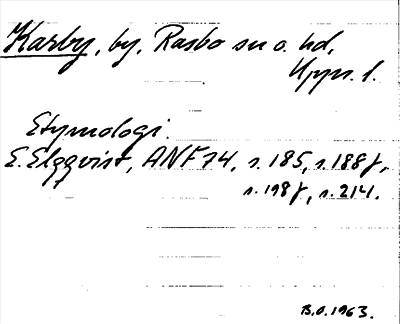 Karby, by, Rasbo sn o. hd,
Uppl. l.
Etymologi.
E. Elgqvist, ANF 74, s. 185, s. 188 f,
s. 198 f, s. 214.
B.O. 1963.